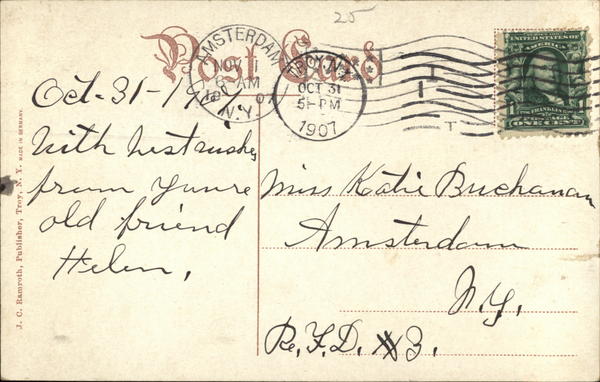 25
Post Card
AMSTERDAM
NOV 1
8-AM
07
N.Y.
TROY, N.Y.
OCT 31
5-PM
1907
UNITED STATES OF
AMERICA
FRANKLIN
POSTAGE
ONE CENT
Oct-31-19
With best wishes
from youre
old friend
Helen,
Miss Katie Buchanan
Amsterdam
N.Y.
R.F.D. #3.
J. C. Ramroth, Publisher, Troy, N. Y. MADE IN GERMANY.